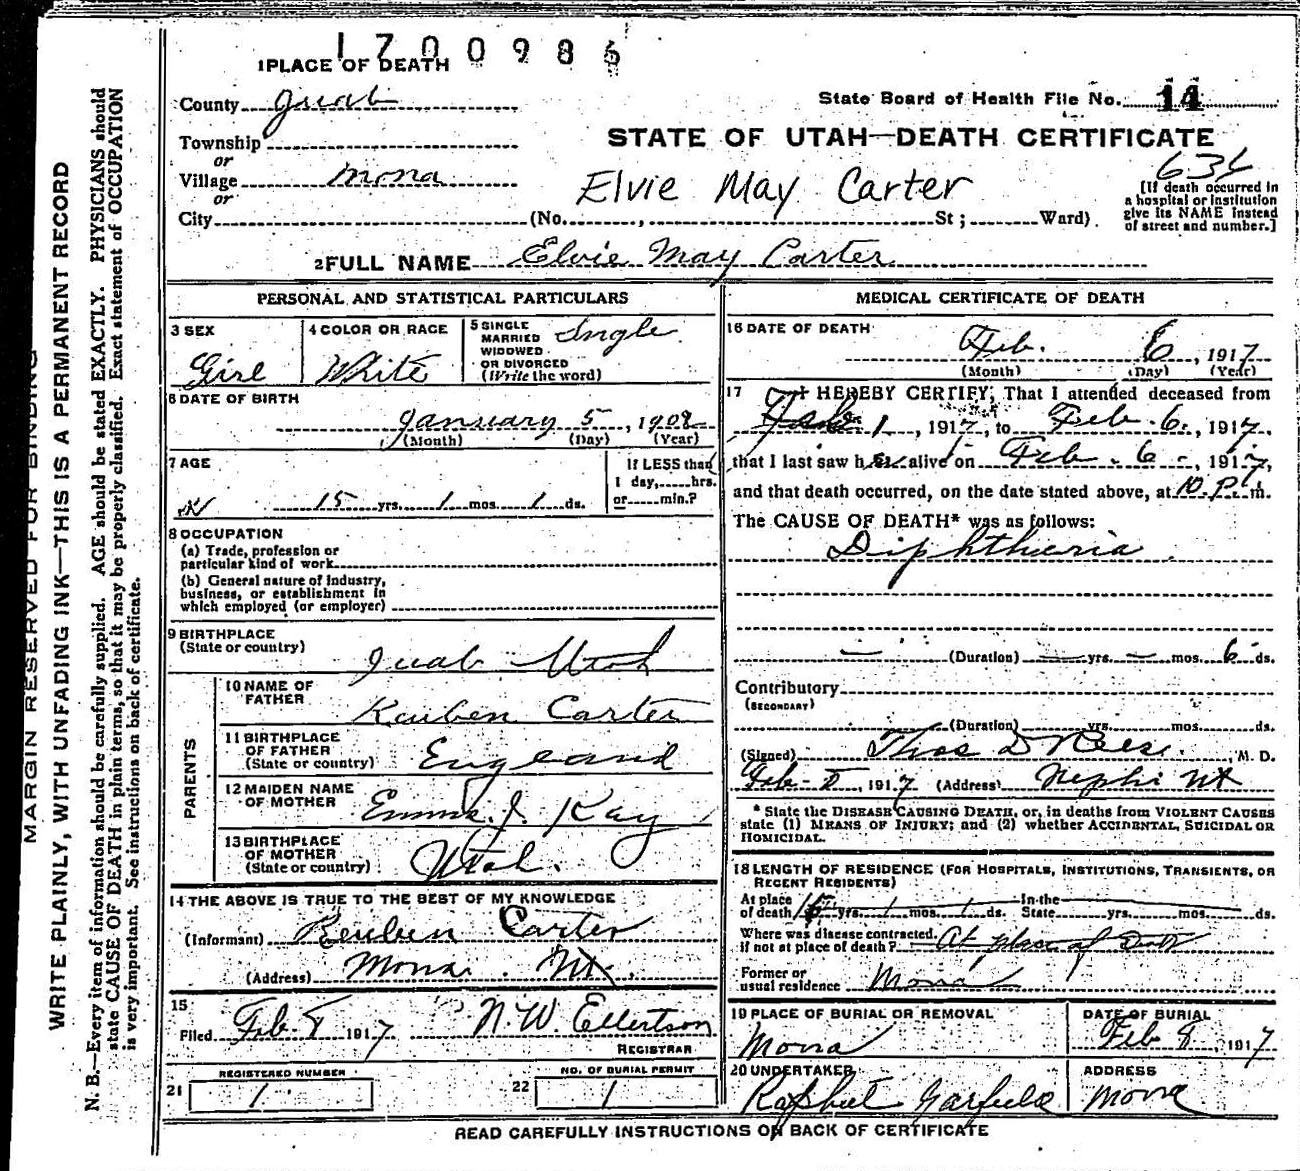 1700986
1 PLACE OF DEATH
County Juab
State Board of Health File No. 14
Township
or
STATE OF UTAH—DEATH CERTIFICATE
Village Mona
or
Elvie May Carter
634
[If death occurred in
a hospital or institution
give its NAME instead
of street and number.]
City (No. , St ; Ward)
2 FULL NAME Elvie May Carter
PERSONAL AND STATISTICAL PARTICULARS
3 SEX
Girl
4 COLOR OR RACE
White
5 SINGLE
MARRIED
WIDOWED
OR DIVORCED
(Write the word)
Single
6 DATE OF BIRTH
January 5, 1902
(Month) (Day) (Year)
7 AGE
15 yrs. 1 mos. 1 ds.
If LESS than
1 day, hrs.
or min.?
8 OCCUPATION
(a) Trade, profession or
particular kind of work
(b) General nature of Industry,
business, or establishment in
which employed (or employer)
9 BIRTHPLACE
(State or country)
Juab Utah
PARENTS
10 NAME OF
FATHER
Reuben Carter
11 BIRTHPLACE
OF FATHER
(State or country)
England
12 MAIDEN NAME
OF MOTHER
Emma J. Kay
13 BIRTHPLACE
OF MOTHER
(State or country)
Utah.
14 THE ABOVE IS TRUE TO THE BEST OF MY KNOWLEDGE
(Informant) Reuben Carter
(Address) Mona. Ut.
15
Filed Feb-8 1917 N.W. Ellertson
REGISTRAR
21 REGISTERED NUMBER
1
22 NO. OF BURIAL PERMIT
1
MEDICAL CERTIFICATE OF DEATH
16 DATE OF DEATH
Feb. 6, 1917
(Month) (Day) (Year)
17 I HEREBY CERTIFY, That I attended deceased from
Feb. 1, 1917, to Feb. 6., 1917,
that I last saw her alive on Feb. 6-, 1917,
and that death occurred, on the date stated above, at 10 P. m.
The CAUSE OF DEATH* was as follows:
Diphtheria
(Duration) — yrs. — mos. 6 ds.
Contributory
(SECONDARY)
(Duration) yrs. mos. ds.
(Signed) Thos D Rees., M. D.
Feb- 1917 (Address) Nephi Ut
* State the DISEASE CAUSING DEATH, or, in deaths from VIOLENT CAUSES
state (1) MEANS OF INJURY; and (2) whether ACCIDENTAL, SUICIDAL OR
HOMICIDAL.
18 LENGTH OF RESIDENCE (FOR HOSPITALS, INSTITUTIONS, TRANSIENTS, OR
RECENT RESIDENTS)
At place
of death 15 yrs. 1 mos. 1 ds.
In the
State yrs. mos. ds.
Where was disease contracted.
if not at place of death? At place of Death
Former or
usual residence Mona
19 PLACE OF BURIAL OR REMOVAL
Mona
DATE OF BURIAL
Feb 8, 1917
20 UNDERTAKER
Raphul Garfield
ADDRESS
Mona
READ CAREFULLY INSTRUCTIONS ON BACK OF CERTIFICATE
MARGIN RESERVED FOR BINDING
WRITE PLAINLY, WITH UNFADING INK—THIS IS A PERMANENT RECORD
N. B.—Every item of information should be carefully supplied. AGE should be stated EXACTLY. PHYSICIANS should
state CAUSE OF DEATH in plain terms, so that it may be properly classified. Exact statement of OCCUPATION
is very important. See instructions on back of certificate.